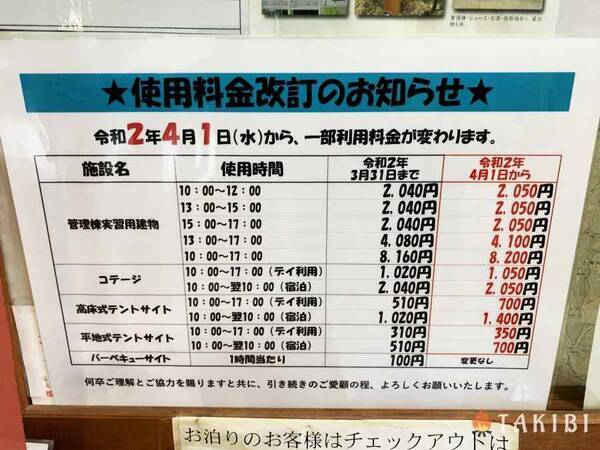 管理棟・シャワー・お湯・自販機あり、貸出
★使用料金改訂のお知らせ★
令和2年4月1日(水)から、一部利用料金が変わります。
施設名 使用時間 令和2年3月31日まで 令和2年4月1日から
管理棟実習用建物 10:00～12:00 2.040円 2.050円
13:00～15:00 2.040円 2.050円
15:00～17:00 2.040円 2.050円
13:00～17:00 4.080円 4.100円
10:00～17:00 8.160円 8.200円
コテージ 10:00～17:00(デイ利用) 1.020円 1.050円
10:00～翌10:00(宿泊) 2.040円 2.050円
高床式テントサイト 10:00～17:00(デイ利用) 510円 700円
10:00～翌10:00(宿泊) 1.020円 1.400円
平地式テントサイト 10:00～17:00(デイ利用) 310円 350円
10:00～翌10:00(宿泊) 510円 700円
バーベキューサイト 1時間当たり 100円 変更なし
何卒ご理解とご協力を賜りますと共に、引き続きのご愛顧の程、よろしくお願いいたします。
お泊りのお客様はチェックアウトは
TAKIBI